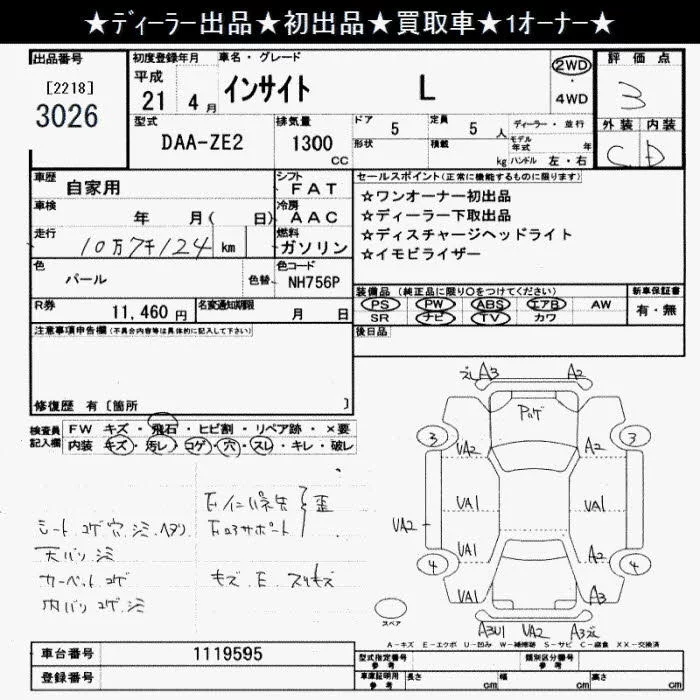 ★ディーラー出品★初出品★買取車★1オーナー★
出品番号 初度登録年月 車名・グレード 評価点
[2218]
3026
平成
21 4月 インサイト L 2WD・4WD 3
型式 排気量 ドア 定員 ディーラー・並行 外装 内装
DAA-ZE2 1300 CC 5 5人 C D
形状 積載 kg モデル年式 年 ハンドル 左・右
車歴 自家用 シフト FAT セールスポイント(正常に機能するものに限ります)
車検 年 月( 日) 冷房 AAC ★ワンオーナー初出品
★ディーラー下取出品
走行 10万7千124 km 燃料 ガソリン ★ディスチャージヘッドライト
★イモビライザー
色 パール 色替 色コード NH756P
装備品 (純正品に限り〇をつけてください) 新車保証書
PS PW ABS エアB AW 有・無
SR ナビ TV カワ
R券 11,460円 名変通知期限 月 日
後日品
注意事項申告欄(不具合内容等は具体的に記入して下さい)
修復歴 有[箇所 ]
検査員記入欄 FW キズ・飛石・ヒビ割・リペア跡・×要
内装 キズ・汚レ・コゲ・穴・スレ・キレ・破レ
シート コゲ.穴.シミ.ヘタリ
天バリ シミ
カーペット コゲ
内バリ コゲ.シミ
歪
コアサポート
キズ.E.スリキズ
A3 A2
3 3
VA2 A2
VA1 VA1
VA2
VA1 A2
4 4
VA1 A3
スペア
A3U1 VA2 A3
A-キズ E-エクボ U-凹み W-補修跡 S-サビ C-腐食 XX-交換済
車台番号 1119595 型式指定番号 参考 類別区分番号 参考
登録番号 車庫証明用 参考 長さ cm 幅 cm 高さ cm